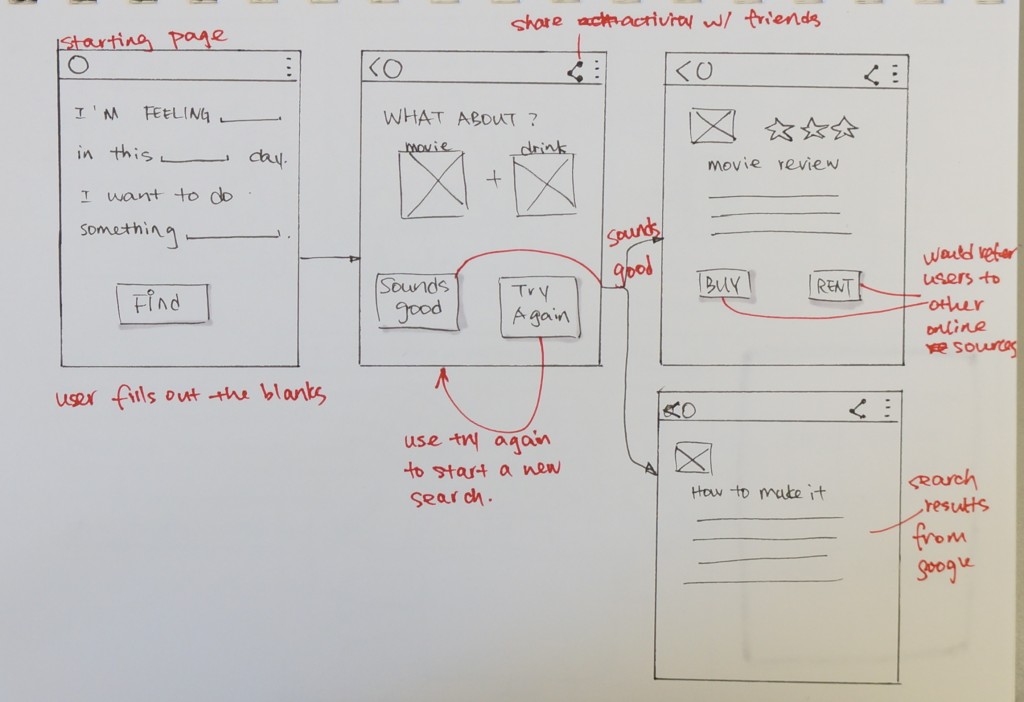 share activity w/ friends
starting page
I'M FEELING ______
in this ______ day.
I want to do
something ______.
Find
user fills out the blanks
WHAT ABOUT ?
movie + drink
Sounds
good
Try
Again
use try again
to start a new
search.
sounds
good
movie review
BUY
RENT
would refer
users to
other
online
sources
How to make it
search
results
from
google